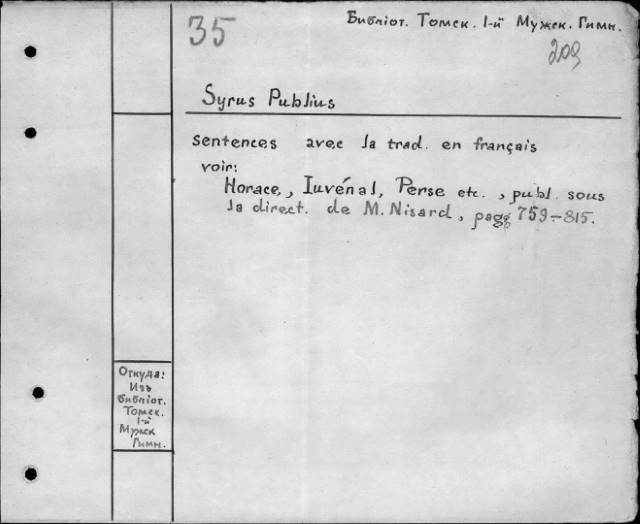 35
Библіот. Томск. 1-й Мужск. Гимн.
209
Syrus Publius
Sentences avec la trad. en français
voir:
Horace, Iuvénal, Perse etc., publ. sous
la direct. de M. Nisard, pagg 759-815.
Откуда:
Изъ
библіот.
Томск.
1-й
Мужск
Гимн.